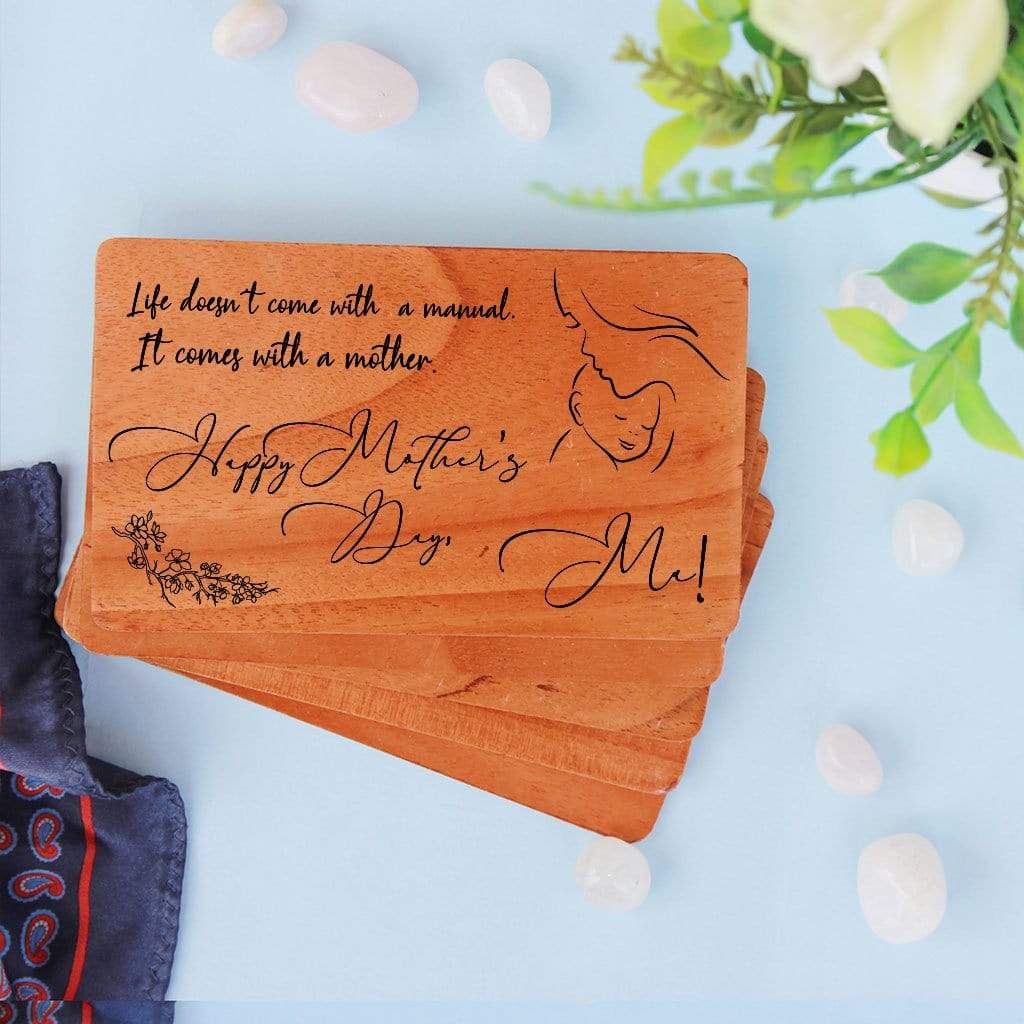 Life doesn't come with a manual.
It comes with a mother.
Happy Mother's
Day,
Ma!